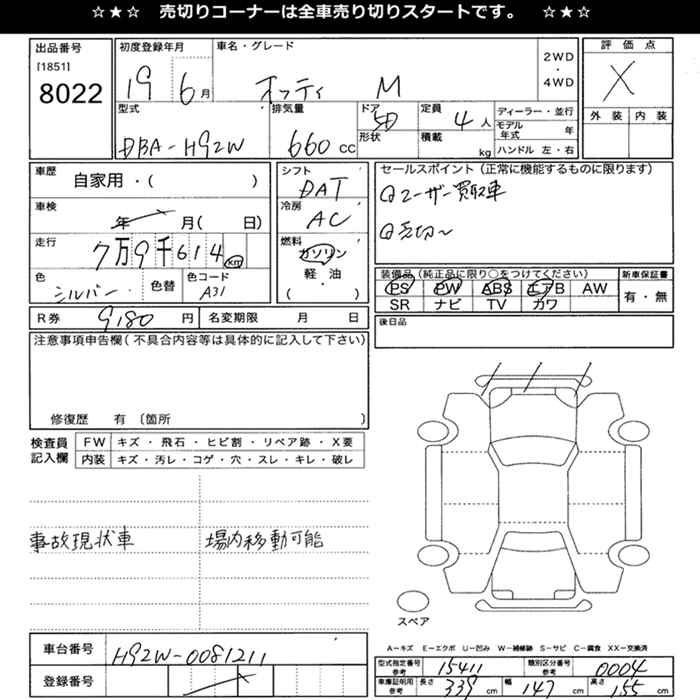 ☆★☆ 売切りコーナーは全車売り切りスタートです。 ☆★☆
出品番号
[1851]
8022
初度登録年月
19 6月
車名・グレード
オッティ M
2WD
・
4WD
評価点
X
外装 内装
型式
DBA-H92W
排気量
660 cc
ドア
5D
形状
定員
4人
積載
kg
ディーラー・並行
モデル年式 年
ハンドル 左・右
車歴
自家用・( )
車検
年 月( 日)
走行
7万9千614km
色
シルバー
色替
色コード
A31
シフト
DAT
冷房
AC
燃料
ガソリン
軽・油
( ・ )
セールスポイント(正常に機能するものに限ります)
@ユーザー買取車
@売切〜
装備品(純正品に限り○をつけてください)
PS PW ABS エアB AW
SR ナビ TV カワ
新車保証書
有・無
R券 9,180 円
名変期限 月 日
後日品
注意事項申告欄(不具合内容等は具体的に記入して下さい)
修復歴 有〔箇所 〕
検査員記入欄
FW キズ・飛石・ヒビ割・リペア跡・X要
内装 キズ・汚レ・コゲ・穴・スレ・キレ・破レ
事故現状車 場内移動可能
スペア
A-キズ E-エクボ U-凹み W-補修跡 S-サビ C-腐食 XX-交換済
車台番号 H92W-0081211
登録番号
型式指定番号
参考
15411
類別区分番号
参考
0004
車庫証明用
参考
長さ 339 cm 幅 147 cm 高さ 155 cm